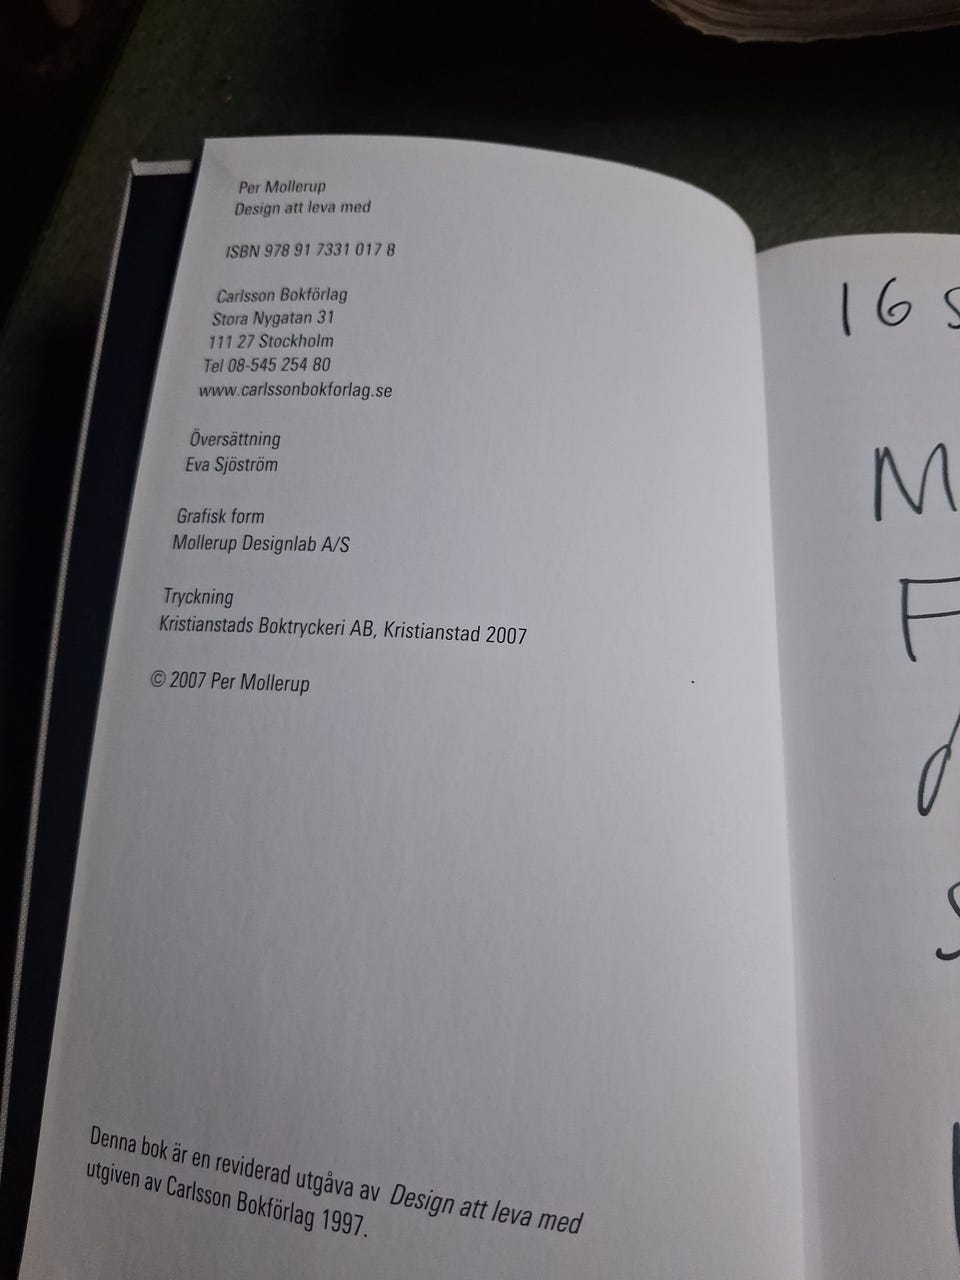 Per Mollerup
Design att leva med
ISBN 978 91 7331 017 8
Carlsson Bokförlag
Stora Nygatan 31
111 27 Stockholm
Tel 08-545 254 80
www.carlssonbokforlag.se
Översättning
Eva Sjöström
Grafisk form
Mollerup Designlab A/S
Tryckning
Kristianstads Boktryckeri AB, Kristianstad 2007
© 2007 Per Mollerup
Denna bok är en reviderad utgåva av Design att leva med
utgiven av Carlsson Bokförlag 1997.
16